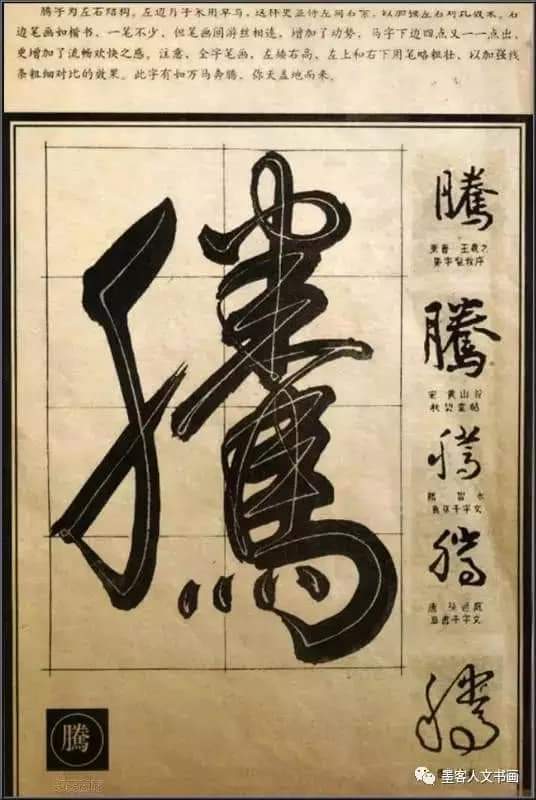 腾字为左右结构，左边月字采用草写，这样更显得左简右繁，以加强左右对比效果。右
边笔画如楷书，一笔不少，但笔画间游丝相连，增加了动势，马字下边四点又一一点出，
更增加了流畅欢快之感。注意，全字笔画，左矮右高、左上和右下用笔略粗壮，以加强线
条粗细对比的效果。此字有如万马奔腾，你天盖地而来。
騰
騰
東晋 王羲之
集字聖教序
騰
宋 黄山谷
騰
真草千字文
騰
騰
騰
墨客人文书画